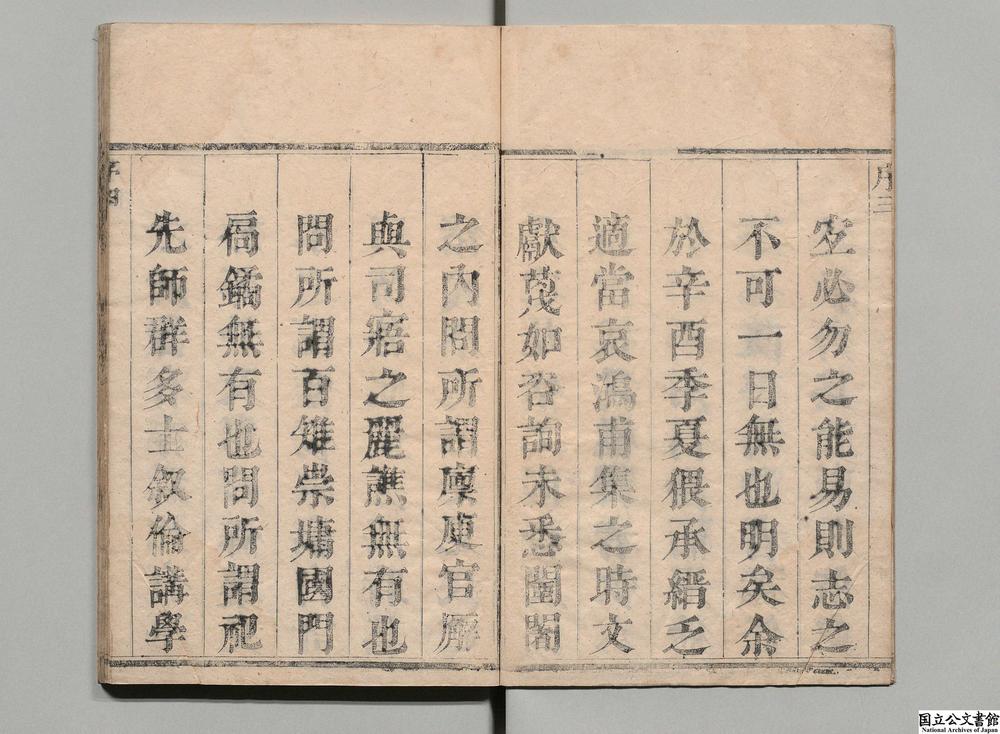 序三
空必勿之能易則志之
不可一日無也明矣余
於辛酉季夏猥承縉之
適當哀鴻甫集之時文
獻茂如咨詢未悉闤闠
之內問所謂廩庾官廨
與司寤之麗譙無有也
問所謂百雉崇墉國門
扄鐍無有也問所謂祀
先師群多士叙倫講學
序四
国立公文書館
National Archives of Japan